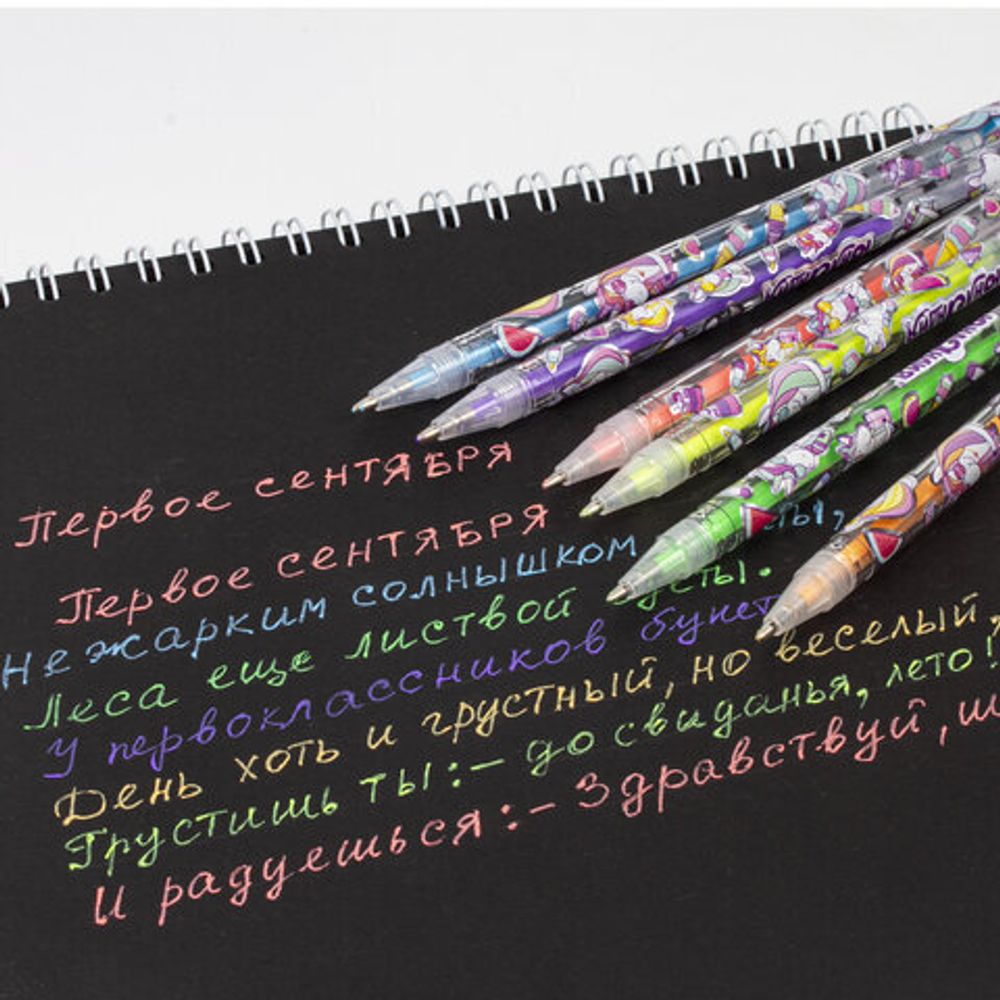 Первое сентября
Первое сентября
Нежарким солнышком
Леса еще листвой
У первоклассников
День хоть и грустный, но веселый,
Грустишь ты:- до свиданья, лето!
И радуешься:- Здравствуй,